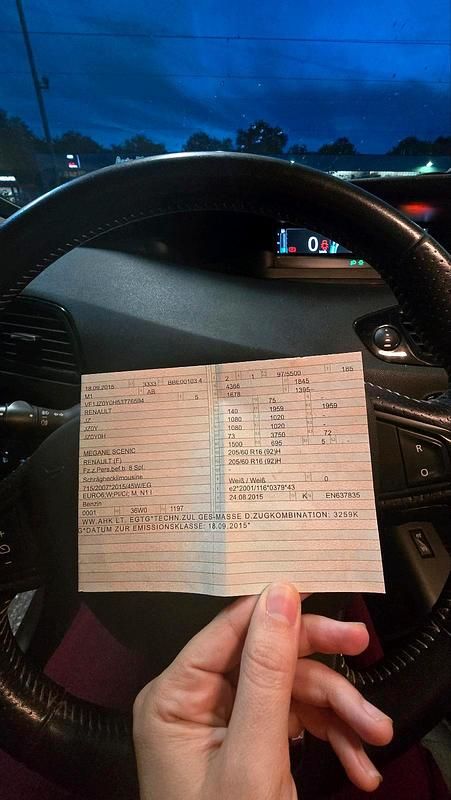 0
18.09.2015 3333 BBE00103 4
M1 AB
VF1JZ0Y0H53776594 5
RENAULT
JZ
JZ0Y
JZ0Y0H
MEGANE SCENIC
RENAULT (F)
Fz.z.Pers.bef.b. 8 Spl.
Schräghecklimousine
715/2007*2015/45W/EG
EURO6;W;PI/CI; M, N1 I
Benzin
0001 36W0 1197
2 1 97/5500 185
4366 1845
1678 1395
75
140 1959 1959
1080 1020
1080 1020
73 3750 72
1500 695 5 -
205/60 R16 (92)H
205/60 R16 (92)H
Weiß / Weiß 0
e2*2001/116*0379*43
24.08.2015 K EN637835
WW.AHK LT. EGTG*TECHN.ZUL GES-MASSE D.ZUGKOMBINATION: 3259K
G*DATUM ZUR EMISSIONSKLASSE: 18.09.2015*
R
O